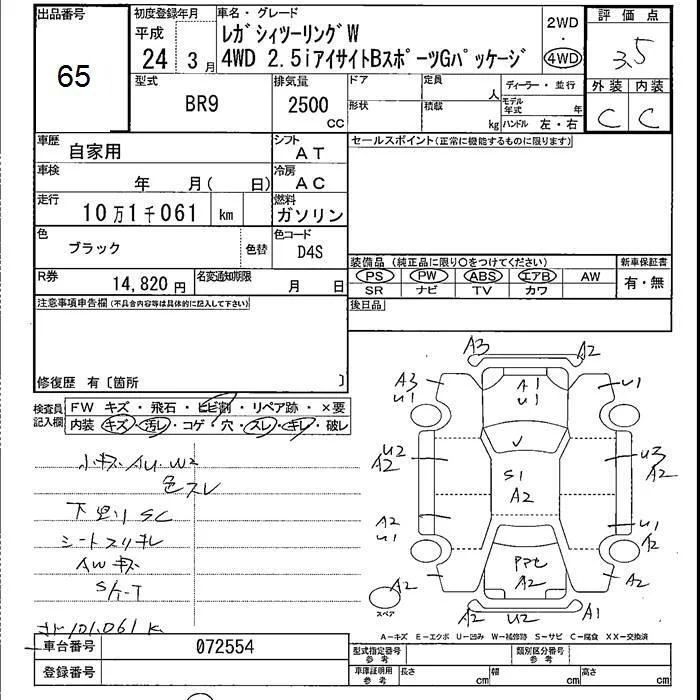 出品番号
65
初度登録年月
平成
24年 3月
車名・グレード
レガシィツーリングW
4WD 2.5iアイサイトBスポーツGパッケージ
2WD
・
4WD
評価点
3.5
外装 内装
C C
型式
BR9
排気量
2500
CC
ドア
形状
定員
人
積載
kg
ディーラー・並行
モデル年式 年
ハンドル 左・右
車歴
自家用
シフト
AT
車検
年 月( 日)
冷房
AC
走行
10万1千061 km
燃料
ガソリン
色
ブラック
色替
色コード
D4S
R券
14,820円
名変通知期限
月 日
セールスポイント(正常に機能するものに限ります)
装備品(純正品に限り○をつけてください)
PS PW ABS エアB AW
SR ナビ TV カワ
新車保証書
有・無
後日品
注意事項申告欄(不具合内容等は具体的に記入して下さい)
修復歴 有〔箇所 〕
検査員記入欄
FW キズ・飛石・ヒビ割・リペア跡・×要
内装 キズ・汚レ・コゲ・穴・スレ・キレ・破レ
小キズ AU.W2
色スレ
下回り SC
シートスリキレ
AWキズ
S/T-T
101.061K
A3 A2
A3 U1
A1 U1
U1
U2 A2
S1 A2
U3 A2
A2 U1
U1 A2
A2
A2
A2
A2 U2 A1
スペア
A-キズ E-エクボ U-凹み W-補修跡 S-サビ C-腐食 XX-交換済
車台番号
072554
登録番号
型式指定番号 参考
類別区分番号 参考
車庫証明用 参考
長さ cm
幅 cm
高さ cm